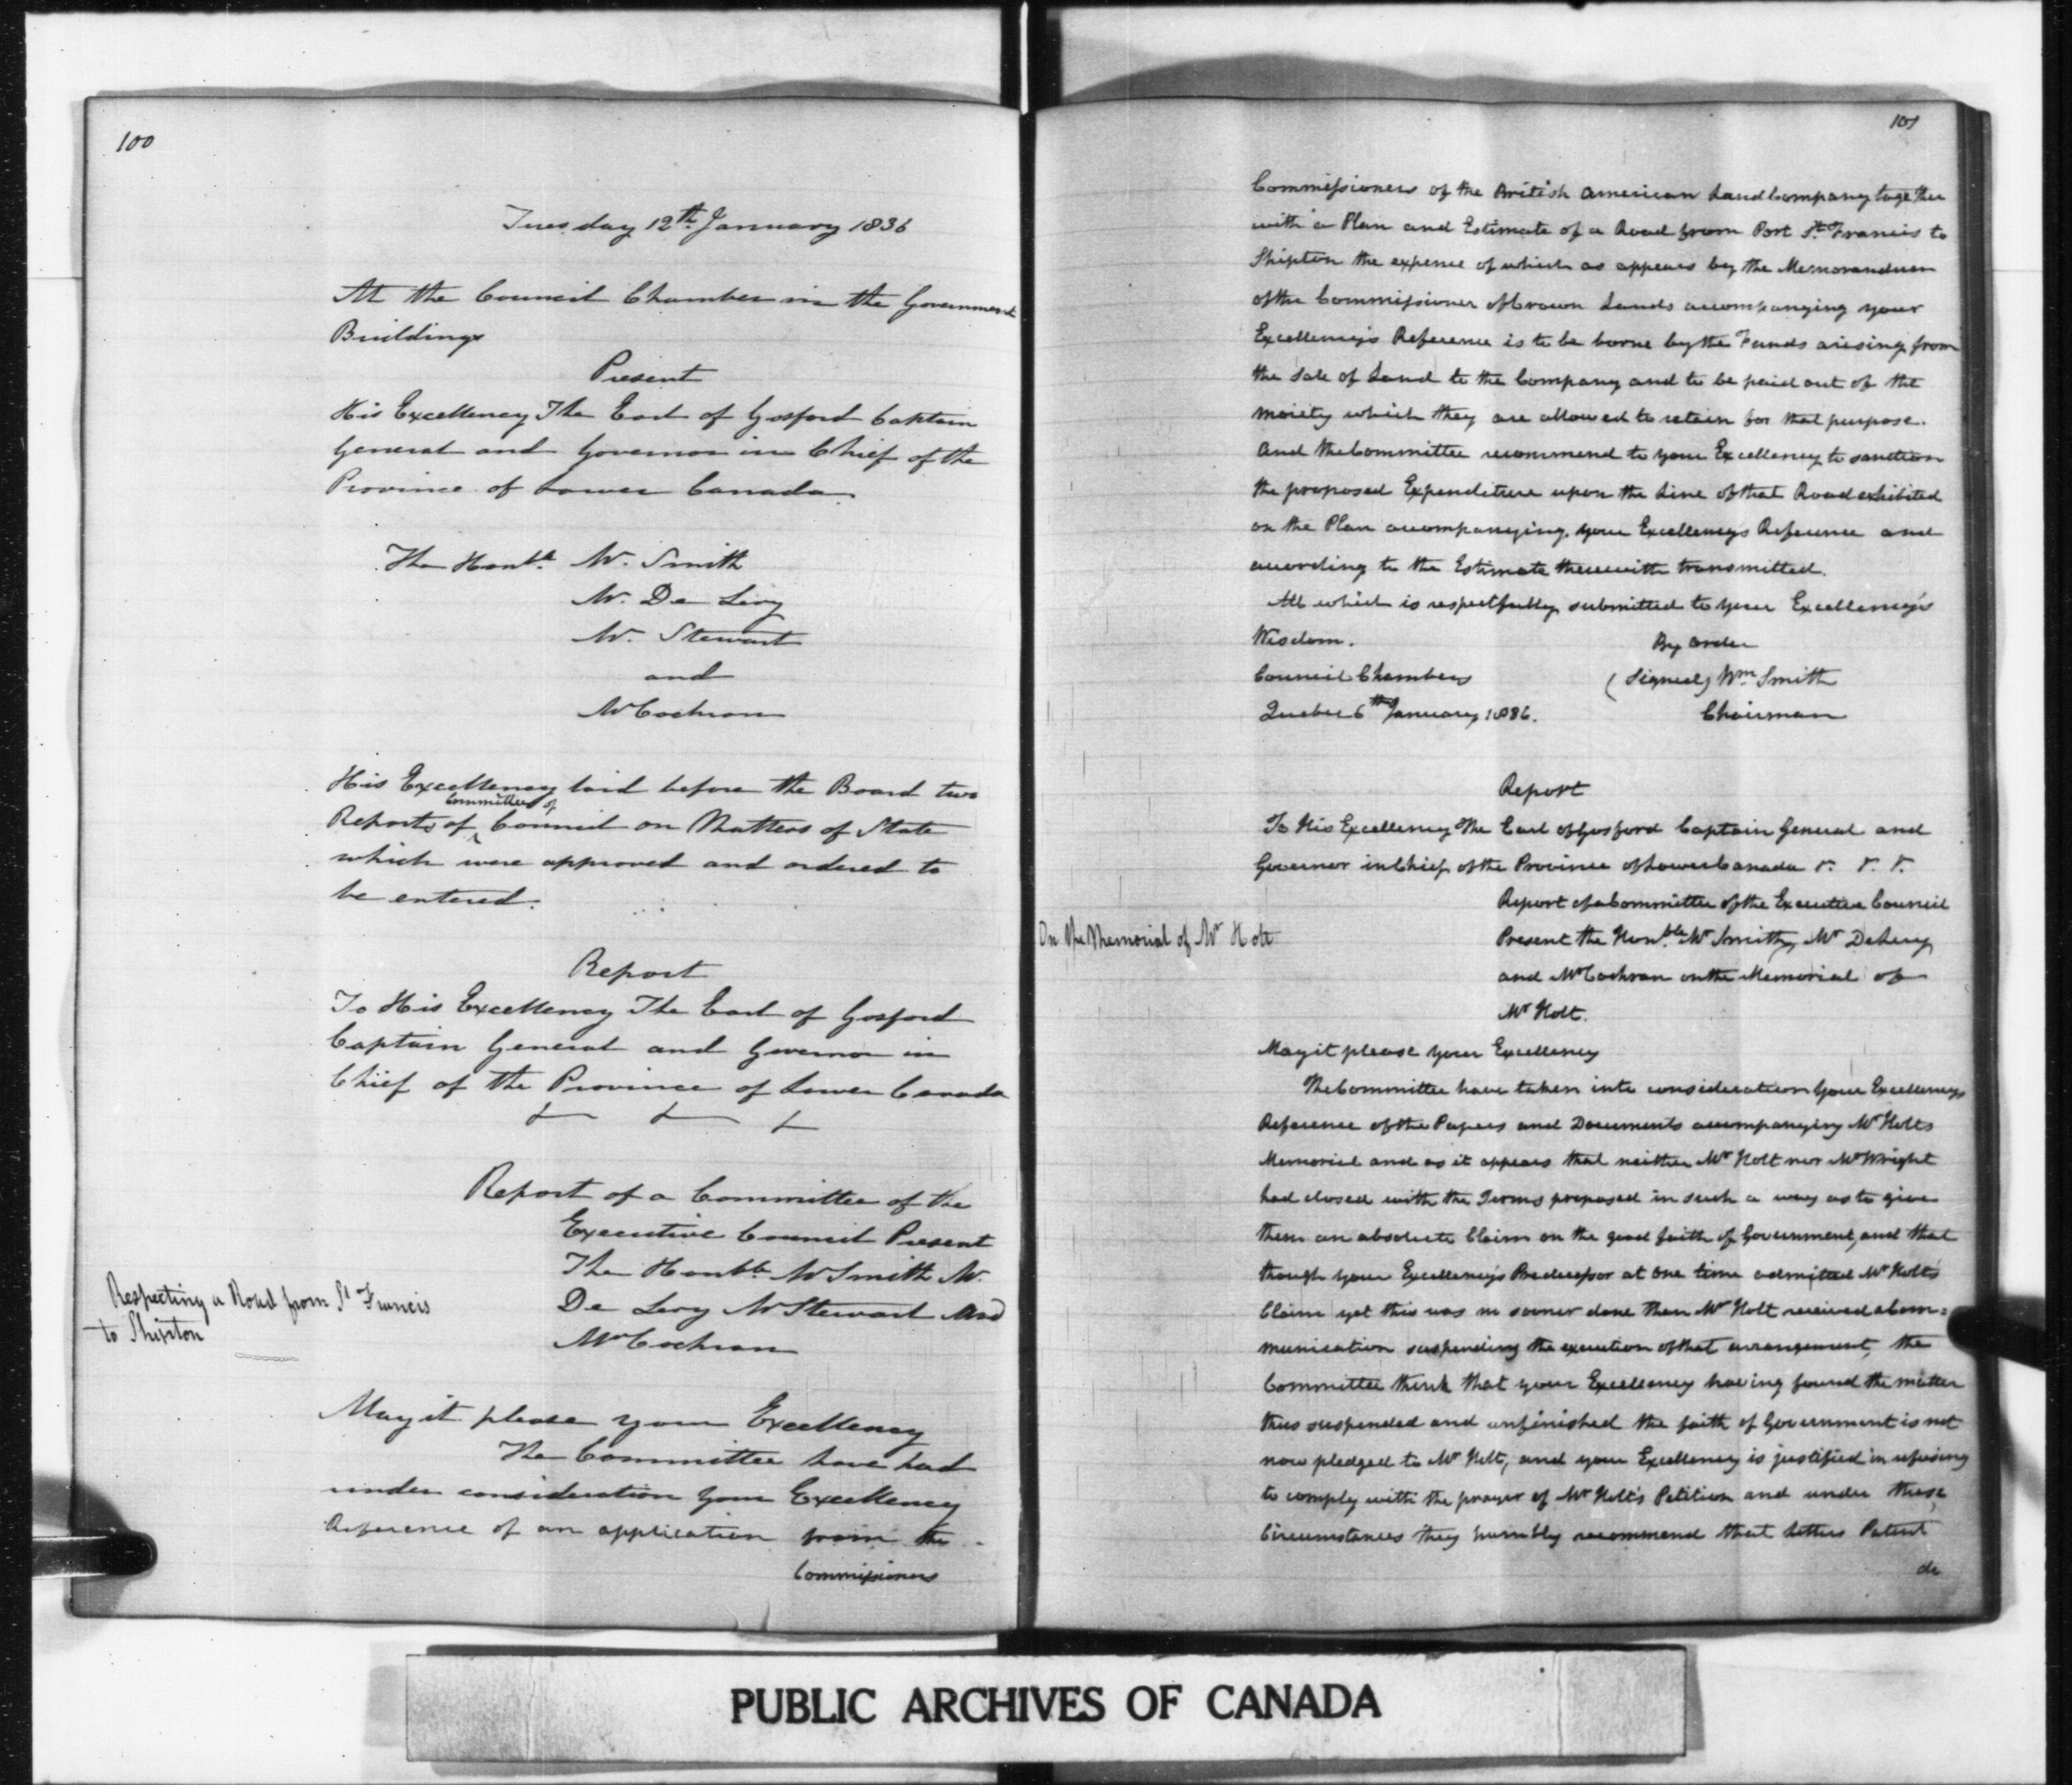 100
Tuesday 12th January 1836
At the Council Chamber in the Government
Buildings
Present
His Excellency The Earl of Gosford Captain
General and Governor in Chief of the
Province of Lower Canada.
The Honble Mr. Smith
Mr. De Lery
Mr. Stewart
and
Mr Cochran
His Excellency laid before the Board two
Reports of Committees of Council on Matters of State
which were approved and ordered to
be entered.
Report
To His Excellency The Earl of Gosford
Captain General and Governor in
Chief of the Province of Lower Canada
&c &c &c
Report of a Committee of the
Executive Council Present
The Honble Mr Smith Mr.
De Lery Mr Stewart And
Mr Cochran
Respecting a Road from St Francis
to Shipton
May it please your Excellency
The Committee have had
under consideration Your Excellency
Reference of an application from the
Commissioners
101
Commissioners of the British American Land Company together
with a Plan and Estimate of a Road from Port St. Francis to
Shipton the expence of which as appears by the Memorandum
of the Commissioner of Crown Lands accompanying your
Excellency's Reference is to be borne by the Funds arising from
the sale of Land to the Company and to be paid out of the
moiety which they are allowed to retain for that purpose.
And the Committee recommend to your Excellency to sanction
the proposed Expenditure upon the Line of that Road exhibited
on the Plan accompanying your Excellency's Reference and
according to the Estimate therewith transmitted.
All which is respectfully submitted to your Excellency's
Wisdom.
By order
Council Chambers
(Signed) Wm Smith
Quebec 6th January 1836.
Chairman
Report
To His Excellency The Earl of Gosford Captain General and
Governor in Chief of the Province of Lower Canada &c. &c. &c.
Report of a Committee of the Executive Council
On the Memorial of Mr Holt
Present the Honble Mr Smith, Mr DeLery
and Mr Cochran on the Memorial of
Mr Holt.
May it please Your Excellency
The Committee have taken into consideration Your Excellency's
Reference of the Papers and Documents accompanying Mr Holts
Memorial and as it appears that neither Mr Holt nor Mr Wright
had closed with the Terms proposed in such a way as to give
them an absolute Claim on the good faith of Government, and that
though your Excellency's Predecessor at one time admitted Mr Holt's
Claim yet this was no sooner done than Mr Holt received a Com=
munication suspending the execution of that arrangement, the
Committee think that your Excellency having found the matter
thus suspended and unfinished the faith of Government is not
now pledged to Mr Holt, and your Excellency is justified in refusing
to comply with the prayer of Mr Holt's Petition and under these
Circumstances they humbly recommend that Letters Patent
do
PUBLIC ARCHIVES OF CANADA